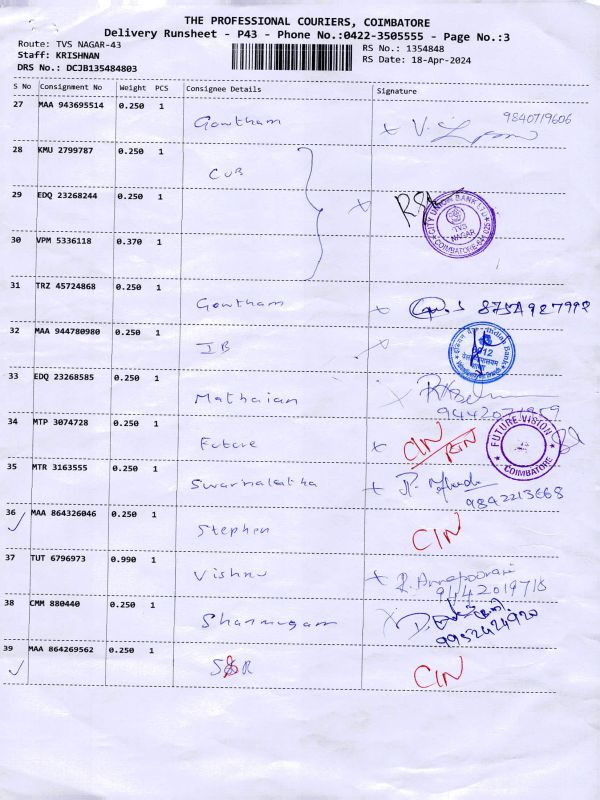 THE PROFESSIONAL COURIERS, COIMBATORE
Delivery Runsheet - P43 - Phone No.:0422-3505555 - Page No.:3
Route: TVS NAGAR-43 RS No.: 1354848
Staff: KRISHNAN RS Date: 18-Apr-2024
DRS No.: DCJB135484803
S No Consignment No Weight PCS Consignee Details Signature
27 MAA 943695514 0.250 1
Gowtham 9840719606
28 KMU 2799787 0.250 1
CUB
29 EDQ 23268244 0.250 1
CITY UNION BANK LTD
TVS NAGAR
COIMBATORE-641 025
30 VPM 5336118 0.370 1
31 TRZ 45724868 0.250 1
Gowtham
32 MAA 944780980 0.250 1
IB
Indian Bank
33 EDQ 23268585 0.250 1
Mathaian
34 MTP 3074728 0.250 1
Future CIN
FUTURE VISION
COIMBATORE
35 MTR 3163555 0.250 1
Swarnalatha
9842213668
36 MAA 864326046 0.250 1
Stephen CIN
37 TUT 6796973 0.990 1
Vishnu R. Annapoorani
9442019715
38 CMM 880440 0.250 1
Shanmugam
9952424920
39 MAA 864269562 0.250 1
CIN